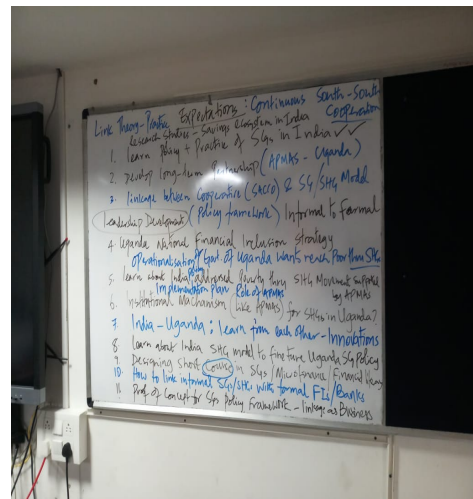 Link Theory-Practice Expectations: Continuous South-South
Cooperation
Research Studies - Savings ecosystem in India
1. learn Policy + Practice of SGs in India ✓✓
2. Develop long-term Partnership (APMAS - Uganda)
3. linkage between Cooperative (SACCO) & SG/SHG Model
Leadership Development (Policy framework) Informal to Formal
4. Uganda National Financial Inclusion Strategy
Operationalisation Govt. of Uganda wants reach Poor thru SHGs
5. learn about India addressed Poverty thru SHG Movement supported
by APMAS
Implementation plan Role of APMAS
6. Institutional Mechanism (like APMAS) for SHGs in Uganda?
7. India-Uganda: learn from each other - Innovations
8. Learn about India SHG model to finetune Uganda SG Policy
9. Designing short Course in SGs / Microfinance / Financial literacy
10. How to link informal SGs/SHGs with formal FIs/Banks
11. Proof of Concept for SGs Policy Framework - linkage as Business